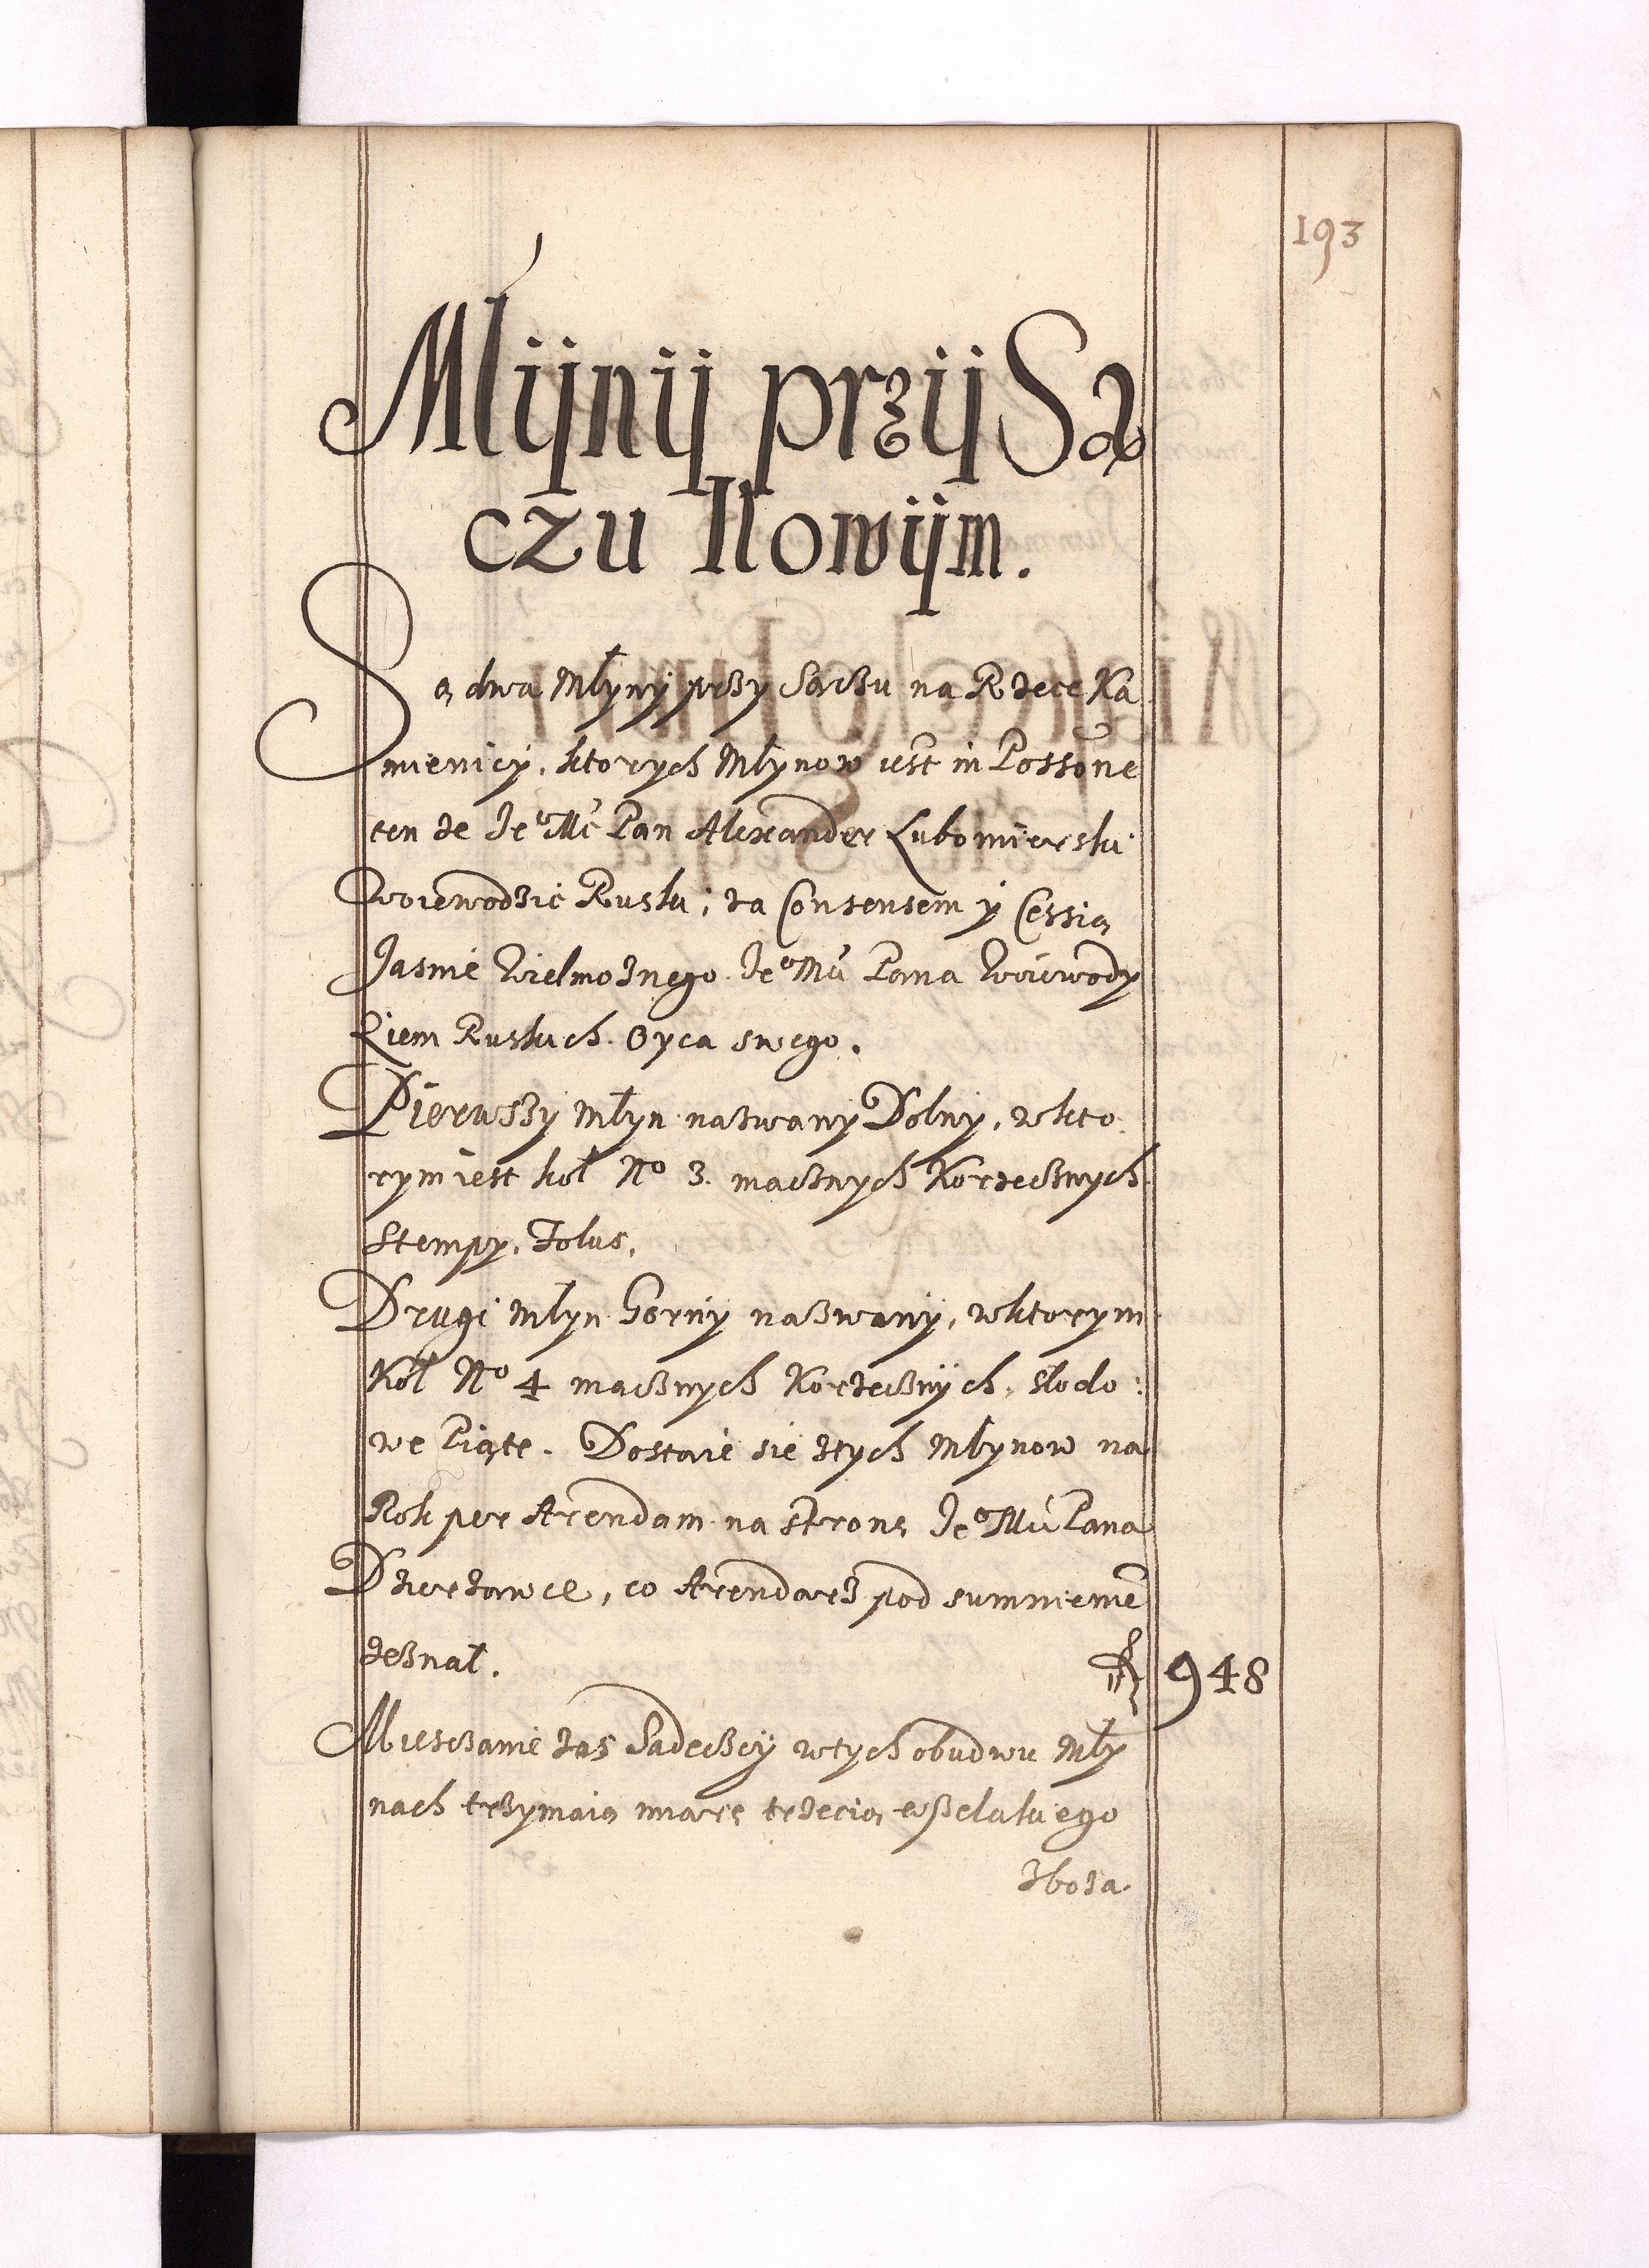 193
Młijnij przij Są
czu Nowijm.
Są dwa Młyny przy Sączu na Rzece Ka
mienicy, ktorych Młynow iest in Possone
ten ze Jeº Mć Pan Alexander Lubomierski
Woiewodzic Ruski, za Consensem y Cessią
Jasnie Wielmoznego Jeº Mći Pana Woiewody
Ziem Ruskich Oyca swego.
Pierwszy Młyn nazwany Dolny, wkto
rym iest koł Nº 3. macznych Korzecznych
Stempy, Folus,
Drugi Młyn Gorny nazwany, wktorym
Koł Nº 4 macznych Korzecznych, słodo:
we Piąte. Dostaie się ztych Młynow na
Rok per Arendam na stronę Jeº Mći Pana
Dzierzawce, co Arendarz pod sumnieniē
zeznał. 948
Miesczanie zas Sadeczcy wtych obudwu Mły
nach trzymaią miarę trzecią wszelakiego
Zboza